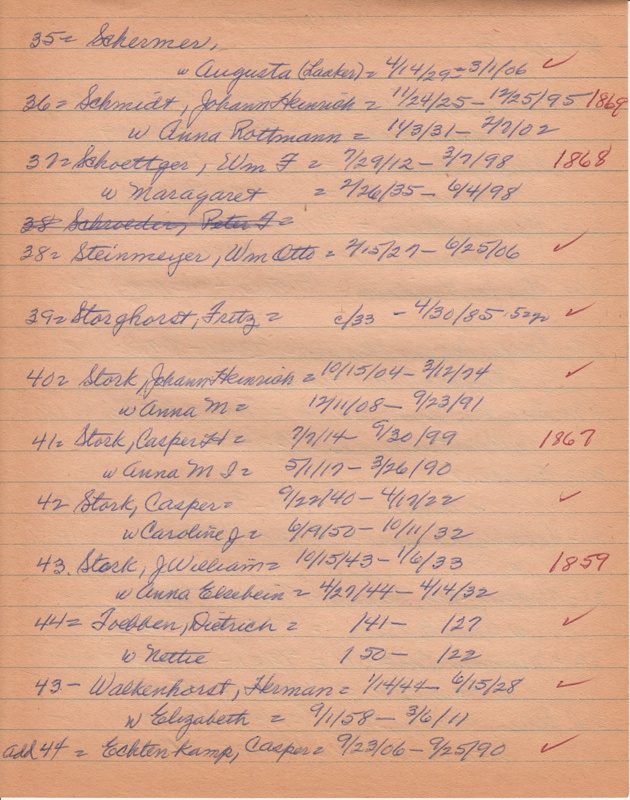 35= Schermer,
w Augusta (Laaker) = 4/14/29 = 3/1/06 ✓
36= Schmidt, Johann Heinrich = 11/24/25 - 12/25/95 1869
w Anna Rottmann = 11/3/31 - 2/7/02
37= Schoettger, Wm F = 7/29/12 - 3/7/98 1868
w Maragaret = 2/26/35 - 6/4/98
38 Schroeder, Peter F =
38= Steinmeyer, Wm Otto = 2/15/27 - 6/25/06 ✓
39= Storghorst, Fritz = c/33 - 4/30/85 . 52yr ✓
40= Stork, Johann Heinrich = 10/15/04 - 3/12/74 ✓
w Anna M = 12/11/08 - 9/23/91
41= Stork, Casper H = 7/7/14 - 9/30/99 1867
w Anna M I = 5/1/17 - 3/26/90
42 Stork, Casper = 9/22/40 - 4/17/22 ✓
w Caroline J = 6/19/50 - 10/11/32
43. Stork, J William = 10/15/43 - 1/6/33 1859
w Anna Elsebein = 4/27/44 - 4/14/32
44= Toebben, Dietrich = 141 - 127 ✓
w Nettie 150 - 122
43 - Walkenhorst, Herman = 1/14/44 - 6/15/28 ✓
w Elizabeth = 9/1/58 - 3/6/11
add 44 = Echtenkamp, Casper = 9/23/06 - 9/25/90 ✓